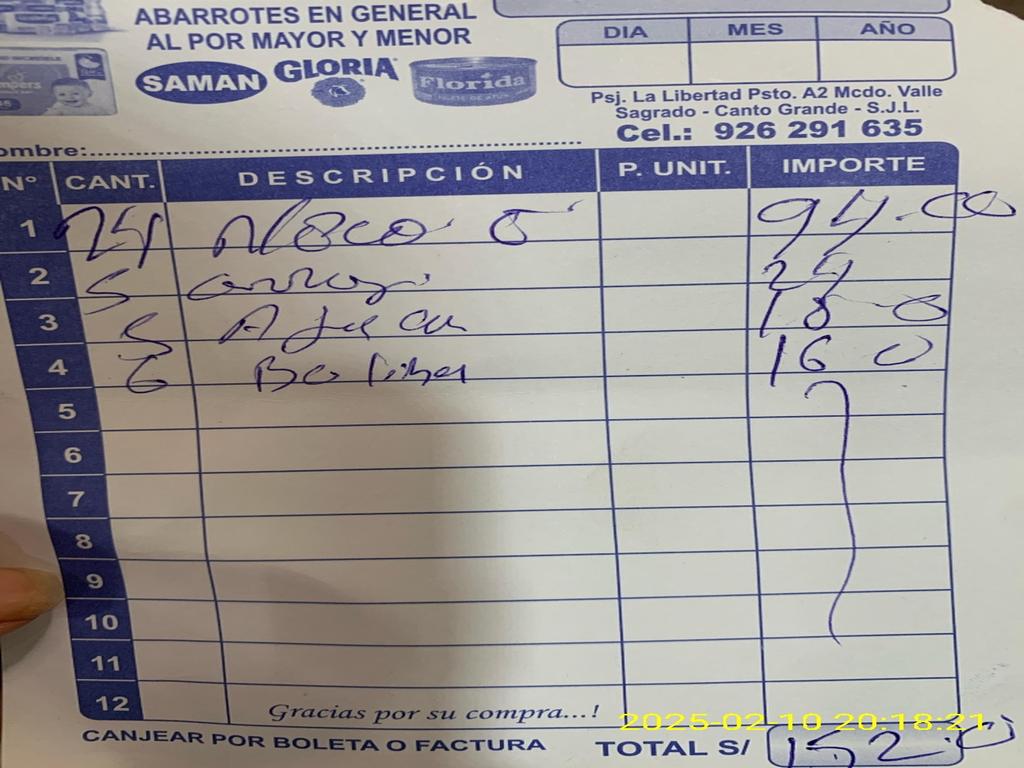 ABARROTES EN GENERAL
AL POR MAYOR Y MENOR
SAMAN GLORIA Florida
DIA MES AÑO
Psj. La Libertad Psto. A2 Mcdo. Valle
Sagrado - Canto Grande - S.J.L.
Cel.: 926 291 635
ombre:
N° CANT. DESCRIPCIÓN P. UNIT. IMPORTE
1 24 94.00
2 5 arroz 24
3 5 18-0
4 6 16 0
5
6
7
8
9
10
11
12
Gracias por su compra...!
2025-02-10 20:18:21
CANJEAR POR BOLETA O FACTURA TOTAL S/ 152.0